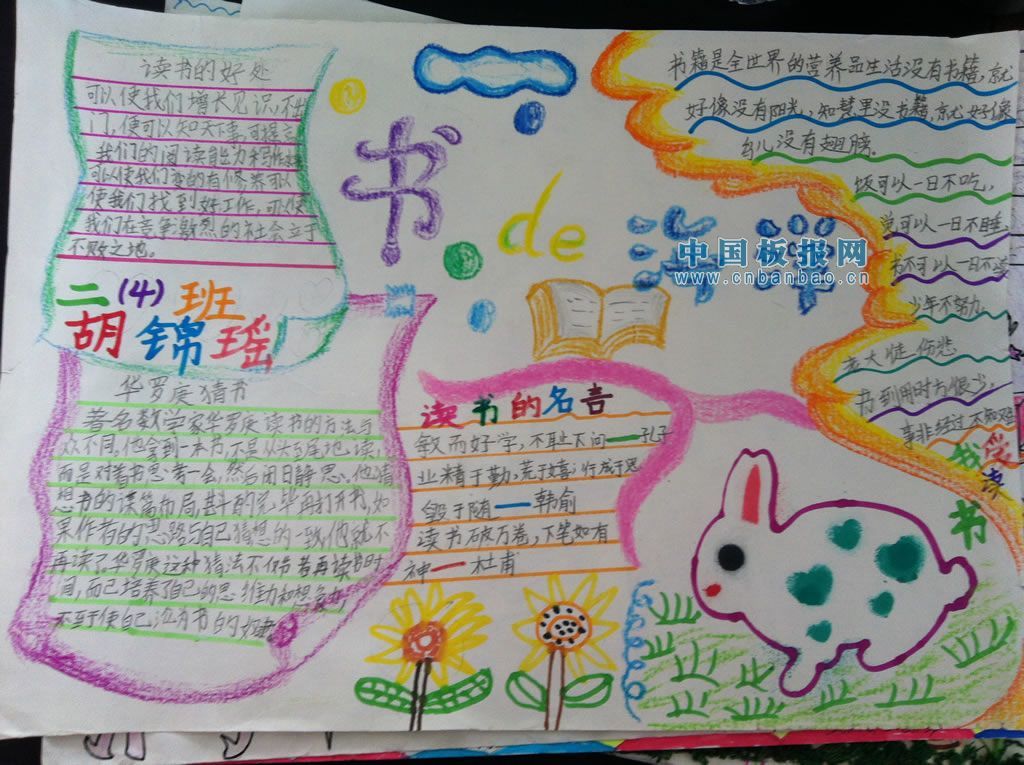 读书的好处
可以使我们增长见识,不出
门,便可以知天下事,可提高
我们的阅读能力和写作
可以使我们变的有修养可以
使我们找到好工作,可以使
我们在竞争激烈的社会立于
不败之地。
二(4)班
胡锦瑶
华罗庚猜书
著名数学家华罗庚读书的方法与
众不同,他拿到一本书,不是从头至尾地读,
而是对着书思考一会,然后闭目静思。他猜
想书的谋篇布局,斟酌完毕再打开书,如
果作者的思路与自己猜想的一致,他就不
再读了。华罗庚这种猜法不仅节省再读书时
间,而已培养了自己的思维力和想象力,
不至于使自己沦为书的奴隶
书
de
海洋
中国板报网
www.cnbanbao.cn
读书的名言
敏而好学,不耻下问——孔子
业精于勤,荒于嬉;行成于思
毁于随——韩俞
读书破万卷,下笔如有
神——杜甫
书籍是全世界的营养品生活没有书籍,就
好像没有阳光,知慧里没书籍,就好像
鸟儿没有翅膀.
饭可以一日不吃,
觉可以一日不睡,
书不可以一日不读
少年不努力
老大徒伤悲
书到用时方恨少,
事非经过不知难
我爱
读
书